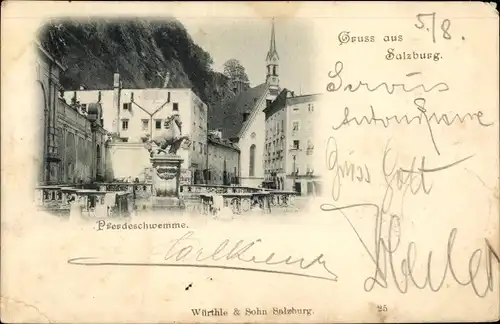 5/8.
Gruss aus
Salzburg.
Servus
Antonie
Grüss Gott
Pferdeschwemme.
Würthle & Sohn Salzburg.
25